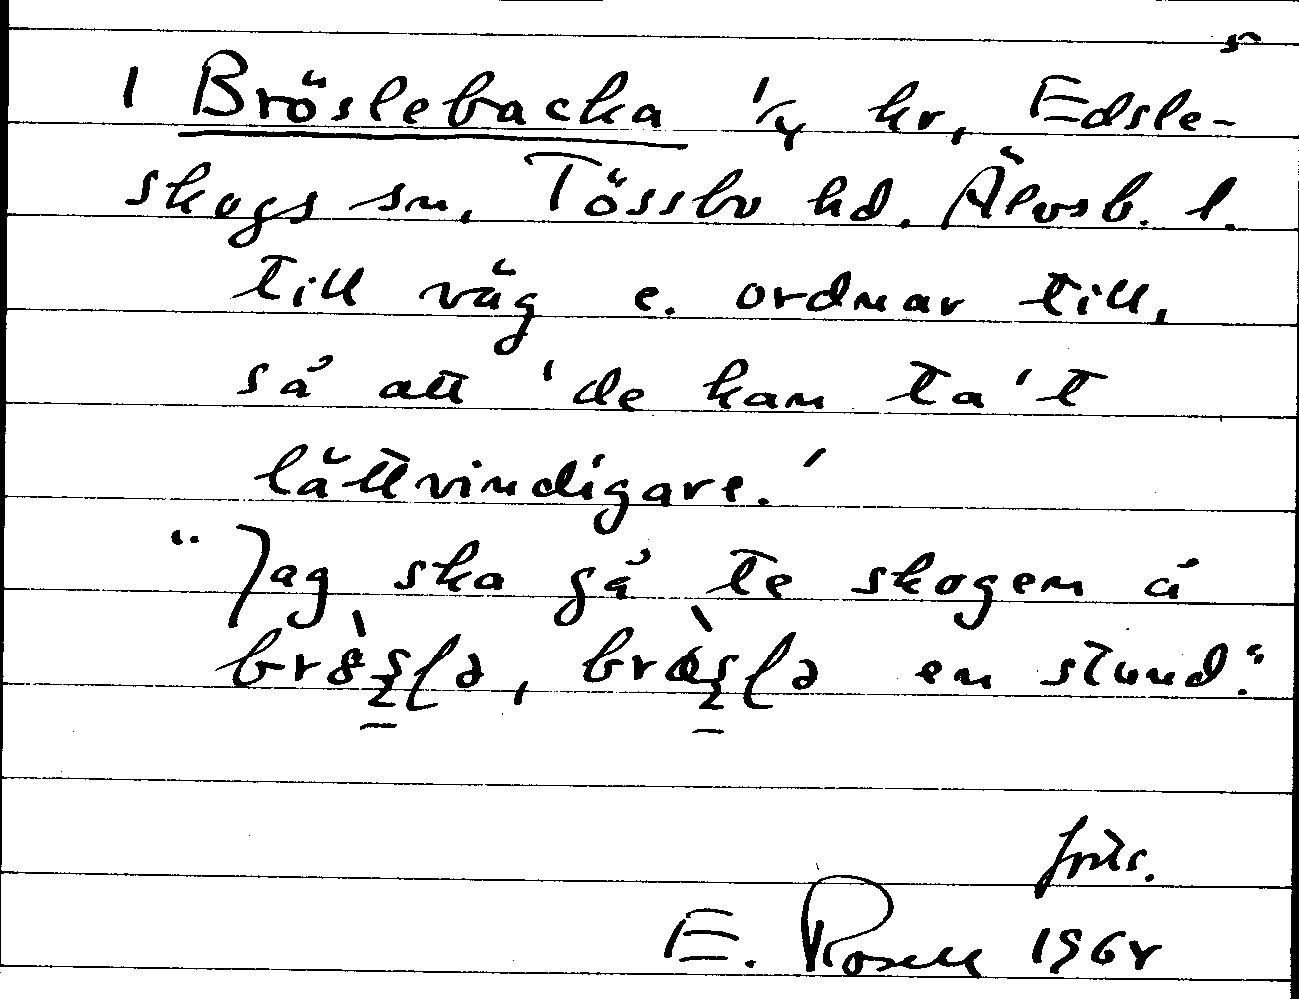 1 Bröslebacka 1/4 kr, Edsle-
skogs sn, Tössbo hd. Älvsb. l.
till väg e. ordnar till,
så att 'de kan ta't
lättvindigare.'
"Jag ska gå te skogen å
en stund."
forts.
E. Rosell 1964